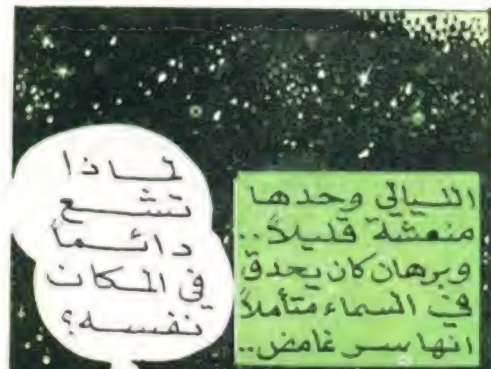 الليالي وحدها
منعشة قليلاً..
وبرهان كان يحدق
في السماء متأملاً
انها سر غامض..
لماذا
تشع
دائماً
في المكان
نفسه؟